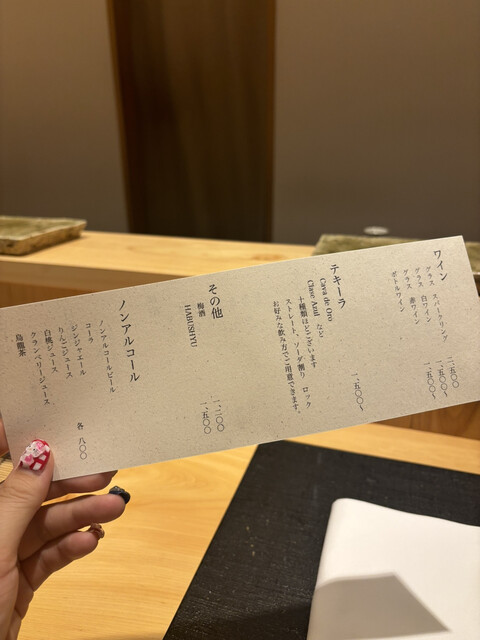 ワイン
グラス スパークリング 二、五〇〇
グラス 白ワイン 一、五〇〇〜
グラス 赤ワイン 一、五〇〇〜
ボトルワイン
テキーラ
Cava de Oro
Clase Azul など
十種類ほどございます
ストレート、ソーダ割り ロック
お好みな飲み方でご用意できます。
一、五〇〇〜
その他
梅酒 一、二〇〇
HABUSHYU 一、五〇〇
ノンアルコール
ノンアルコールビール
コーラ
ジンジャエール
りんごジュース
白桃ジュース
クランベリージュース
烏龍茶
各 八〇〇